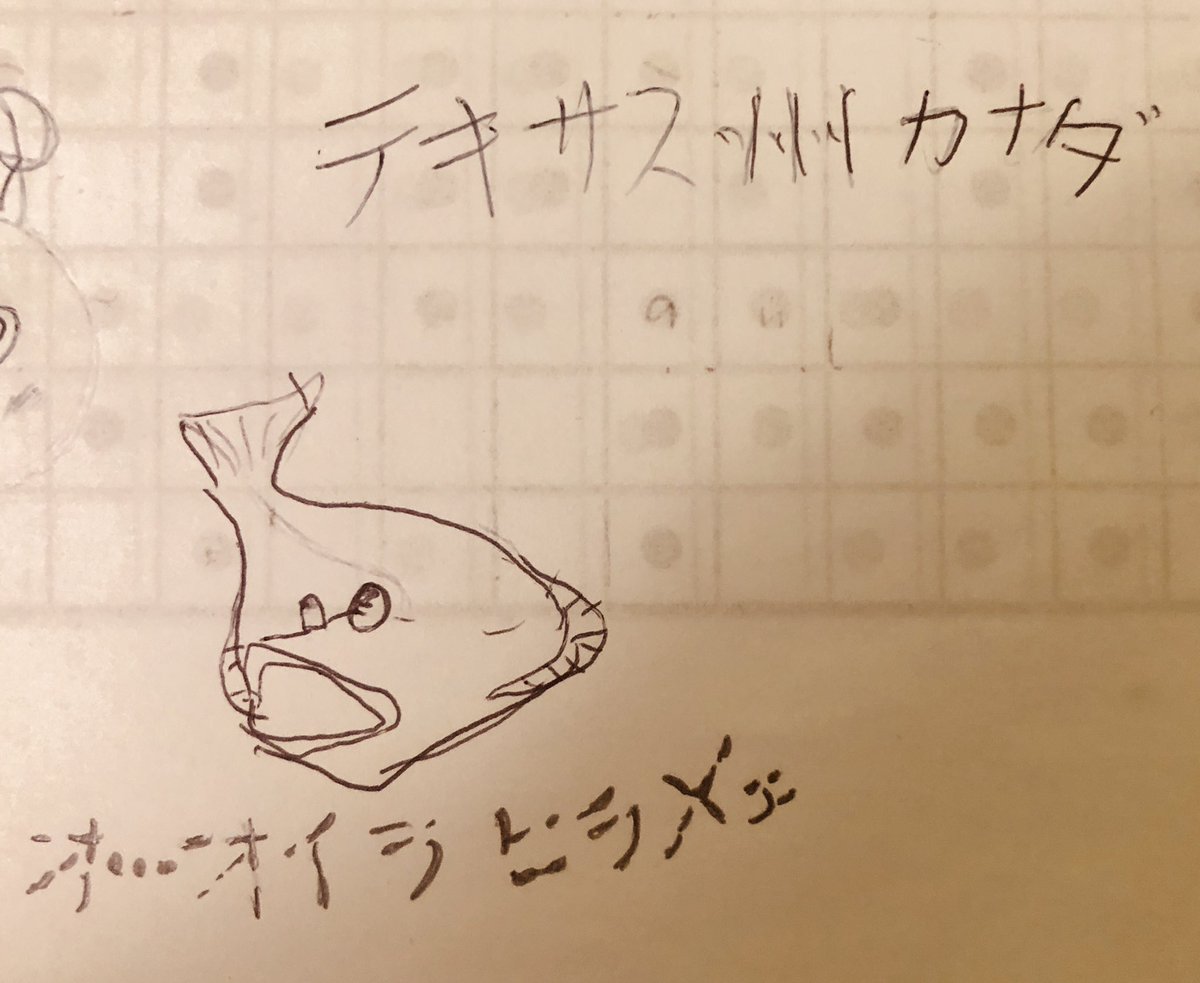 テキサス州カナダ
オ…オイラヒラメジ